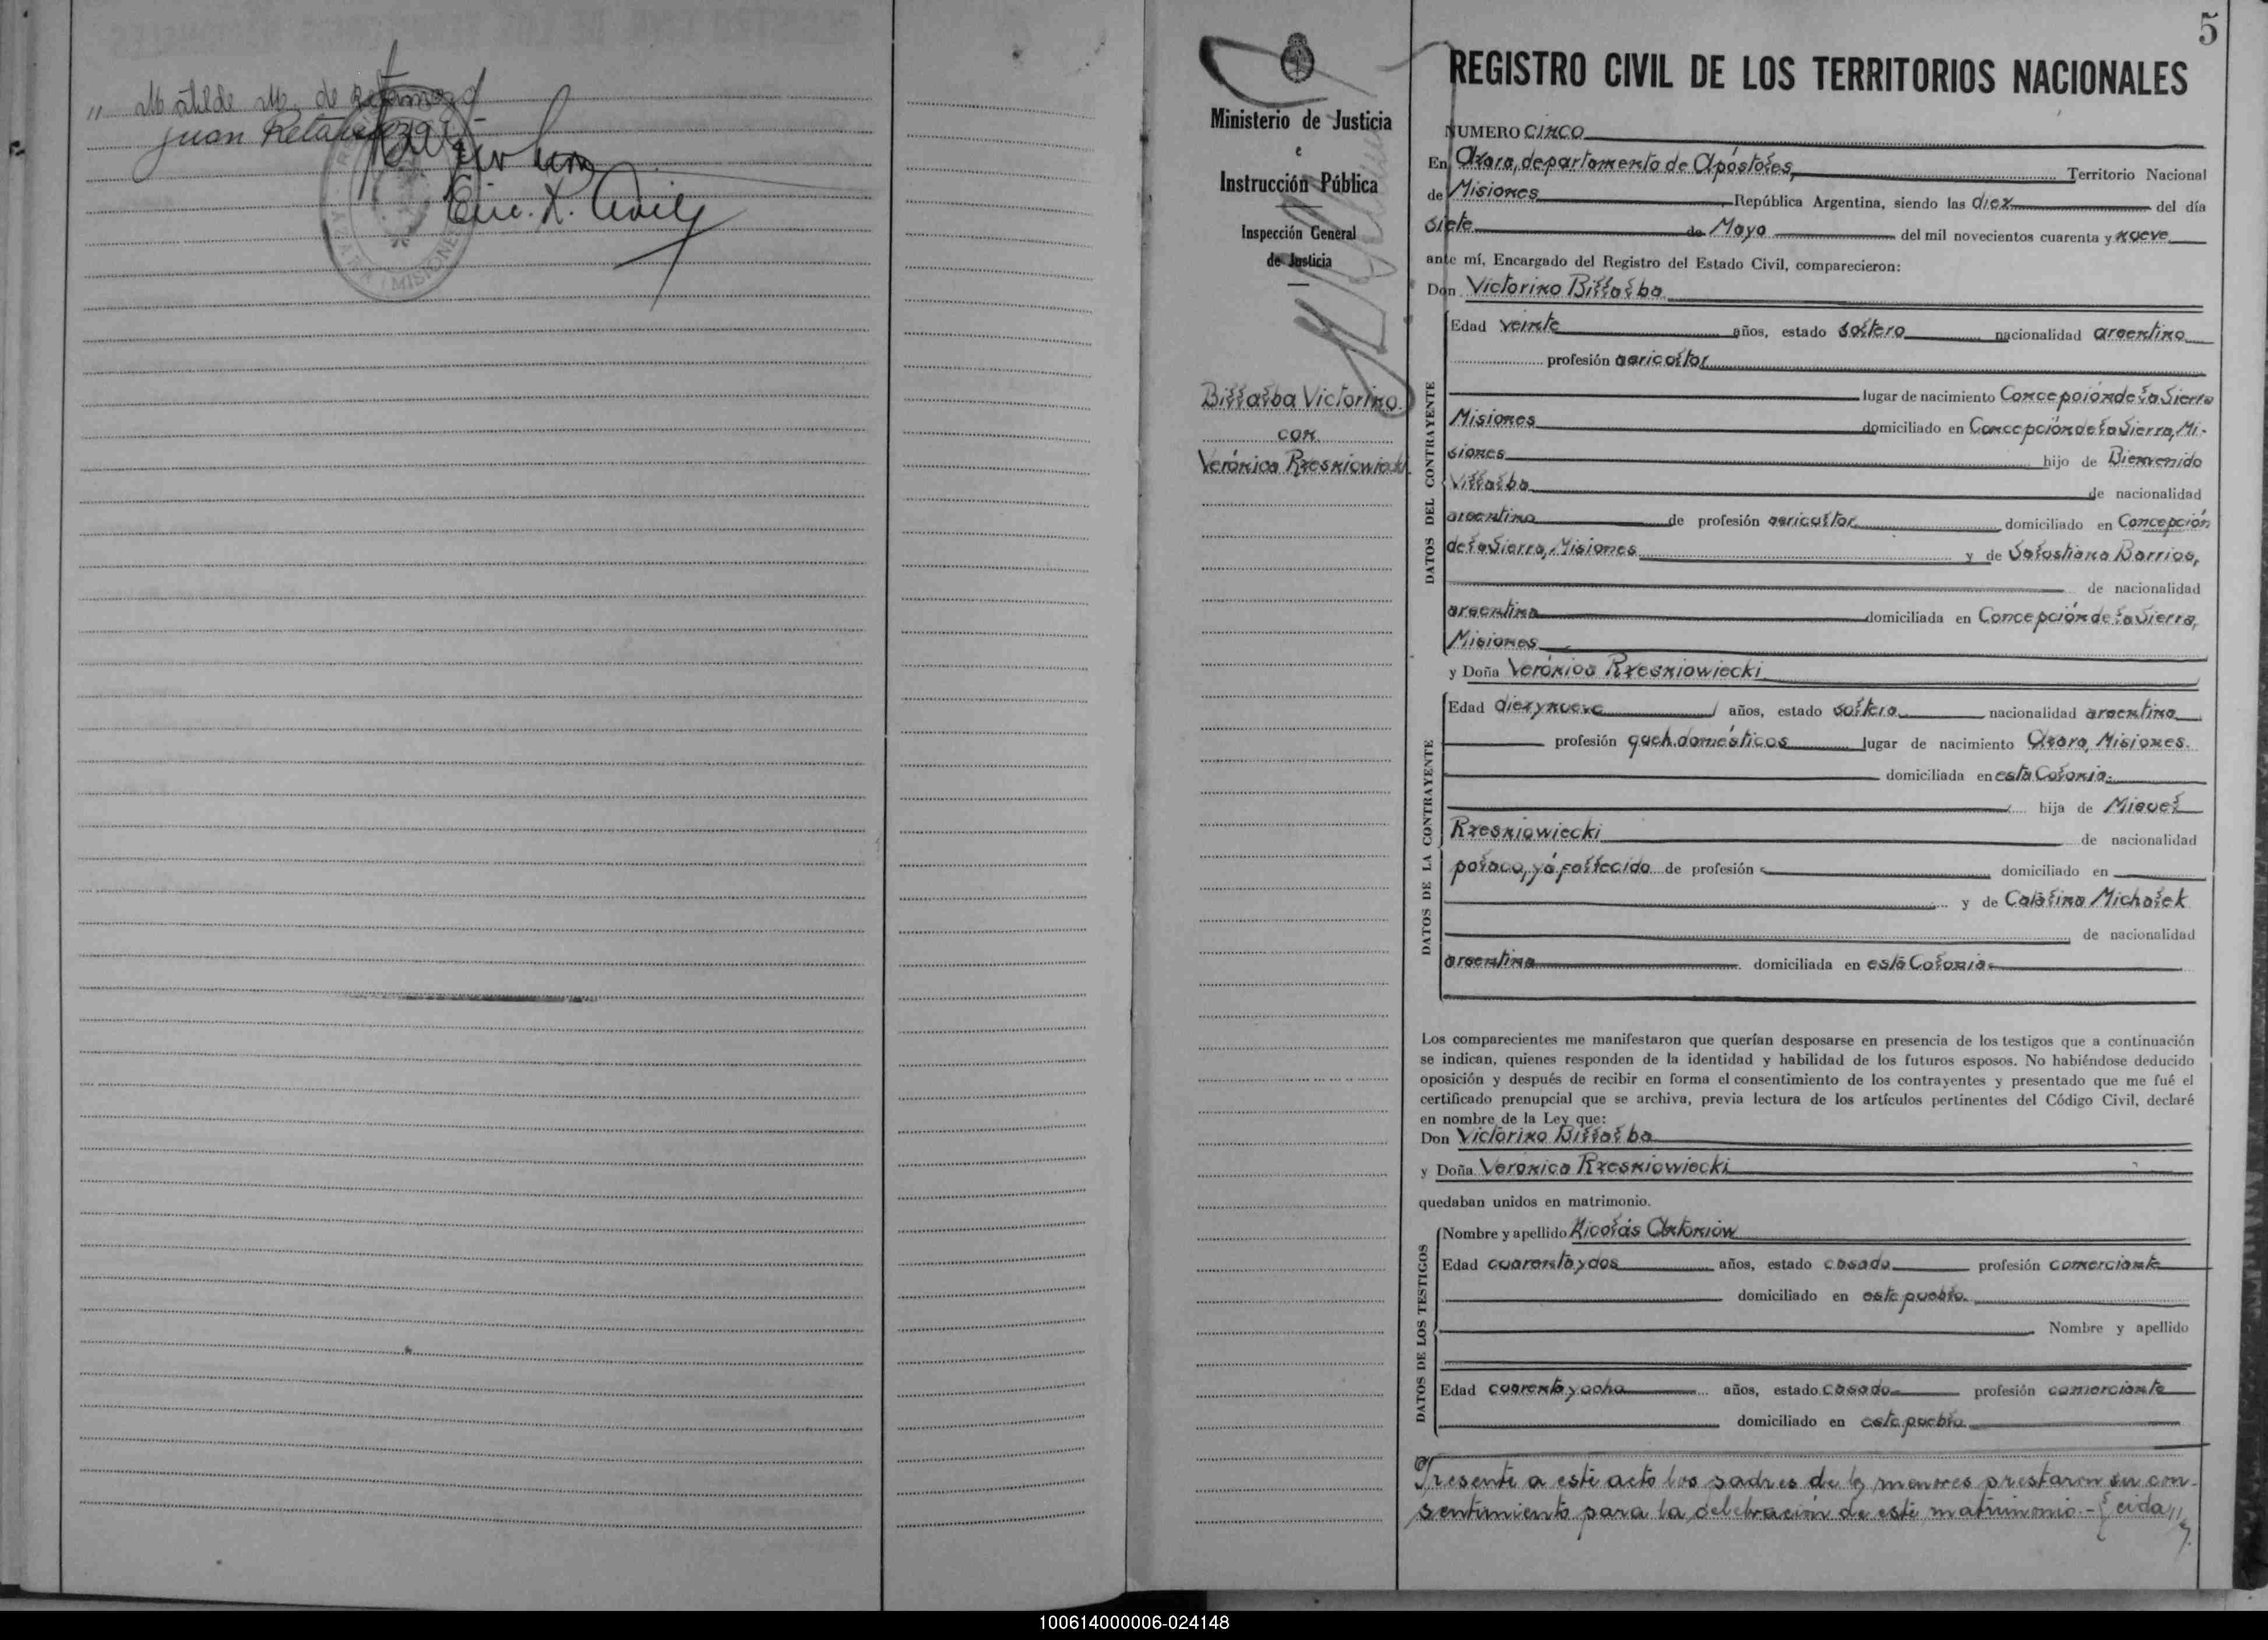 " Matilde M. de Retamozo
Juan Retamozo
MISIONES
Enc. R. Civil
5
Ministerio de Justicia
e
Instrucción Pública
Inspección General
de Justicia
Billalba Victorino
con
Verónica Rzesniowiecki
REGISTRO CIVIL DE LOS TERRITORIOS NACIONALES
NUMERO CINCO
En Azara, departamento de Apóstoles, Territorio Nacional
de Misiones República Argentina, siendo las diez del día
siete de Mayo del mil novecientos cuarenta y nueve
ante mí, Encargado del Registro del Estado Civil, comparecieron:
Don Victorino Billalba
DATOS DEL CONTRAYENTE
Edad veinte años, estado soltero nacionalidad argentino
profesión agricoltor
lugar de nacimiento Concepción de la Sierra
Misiones domiciliado en Concepción de la Sierra, Mi-
siones hijo de Bienvenido
Villalba de nacionalidad
argentino de profesión agricultor domiciliado en Concepción
de la Sierra, Misiones y de Salustiana Barrios,
de nacionalidad
argentina domiciliada en Concepción de la Sierra,
Misiones
y Doña Verónica Rzesniowiecki
DATOS DE LA CONTRAYENTE
Edad diez y nueve años, estado soltera nacionalidad argentina
profesión queh. domésticos lugar de nacimiento Azara, Misiones.
domiciliada en esta Colonia.
hija de Miguel
Rzesniowiecki de nacionalidad
polaca, yá fallecido de profesión domiciliado en
y de Catalina Michalek
de nacionalidad
argentina domiciliada en esta Colonia
Los comparecientes me manifestaron que querían desposarse en presencia de los testigos que a continuación
se indican, quienes responden de la identidad y habilidad de los futuros esposos. No habiéndose deducido
oposición y después de recibir en forma el consentimiento de los contrayentes y presentado que me fué el
certificado prenupcial que se archiva, previa lectura de los artículos pertinentes del Código Civil, declaré
en nombre de la Ley que:
Don Victorino Billalba
y Doña Veronica Rzesniowiecki
quedaban unidos en matrimonio.
DATOS DE LOS TESTIGOS
Nombre y apellido Nicolás Antoniow
Edad cuarenta y dos años, estado casado profesión comerciante
domiciliado en este pueblo.
Nombre y apellido
Edad cuarenta y ocho años, estado casado profesión comerciante
domiciliado en este pueblo
Presente a este acto los padres de los menores prestaron su con-
sentimiento para la celebración de este matrimonio.- Leida,,
100614000006-024148